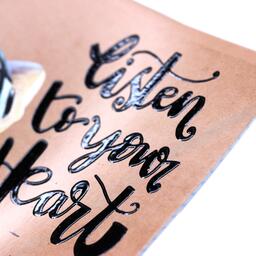 listen
to your
Heart